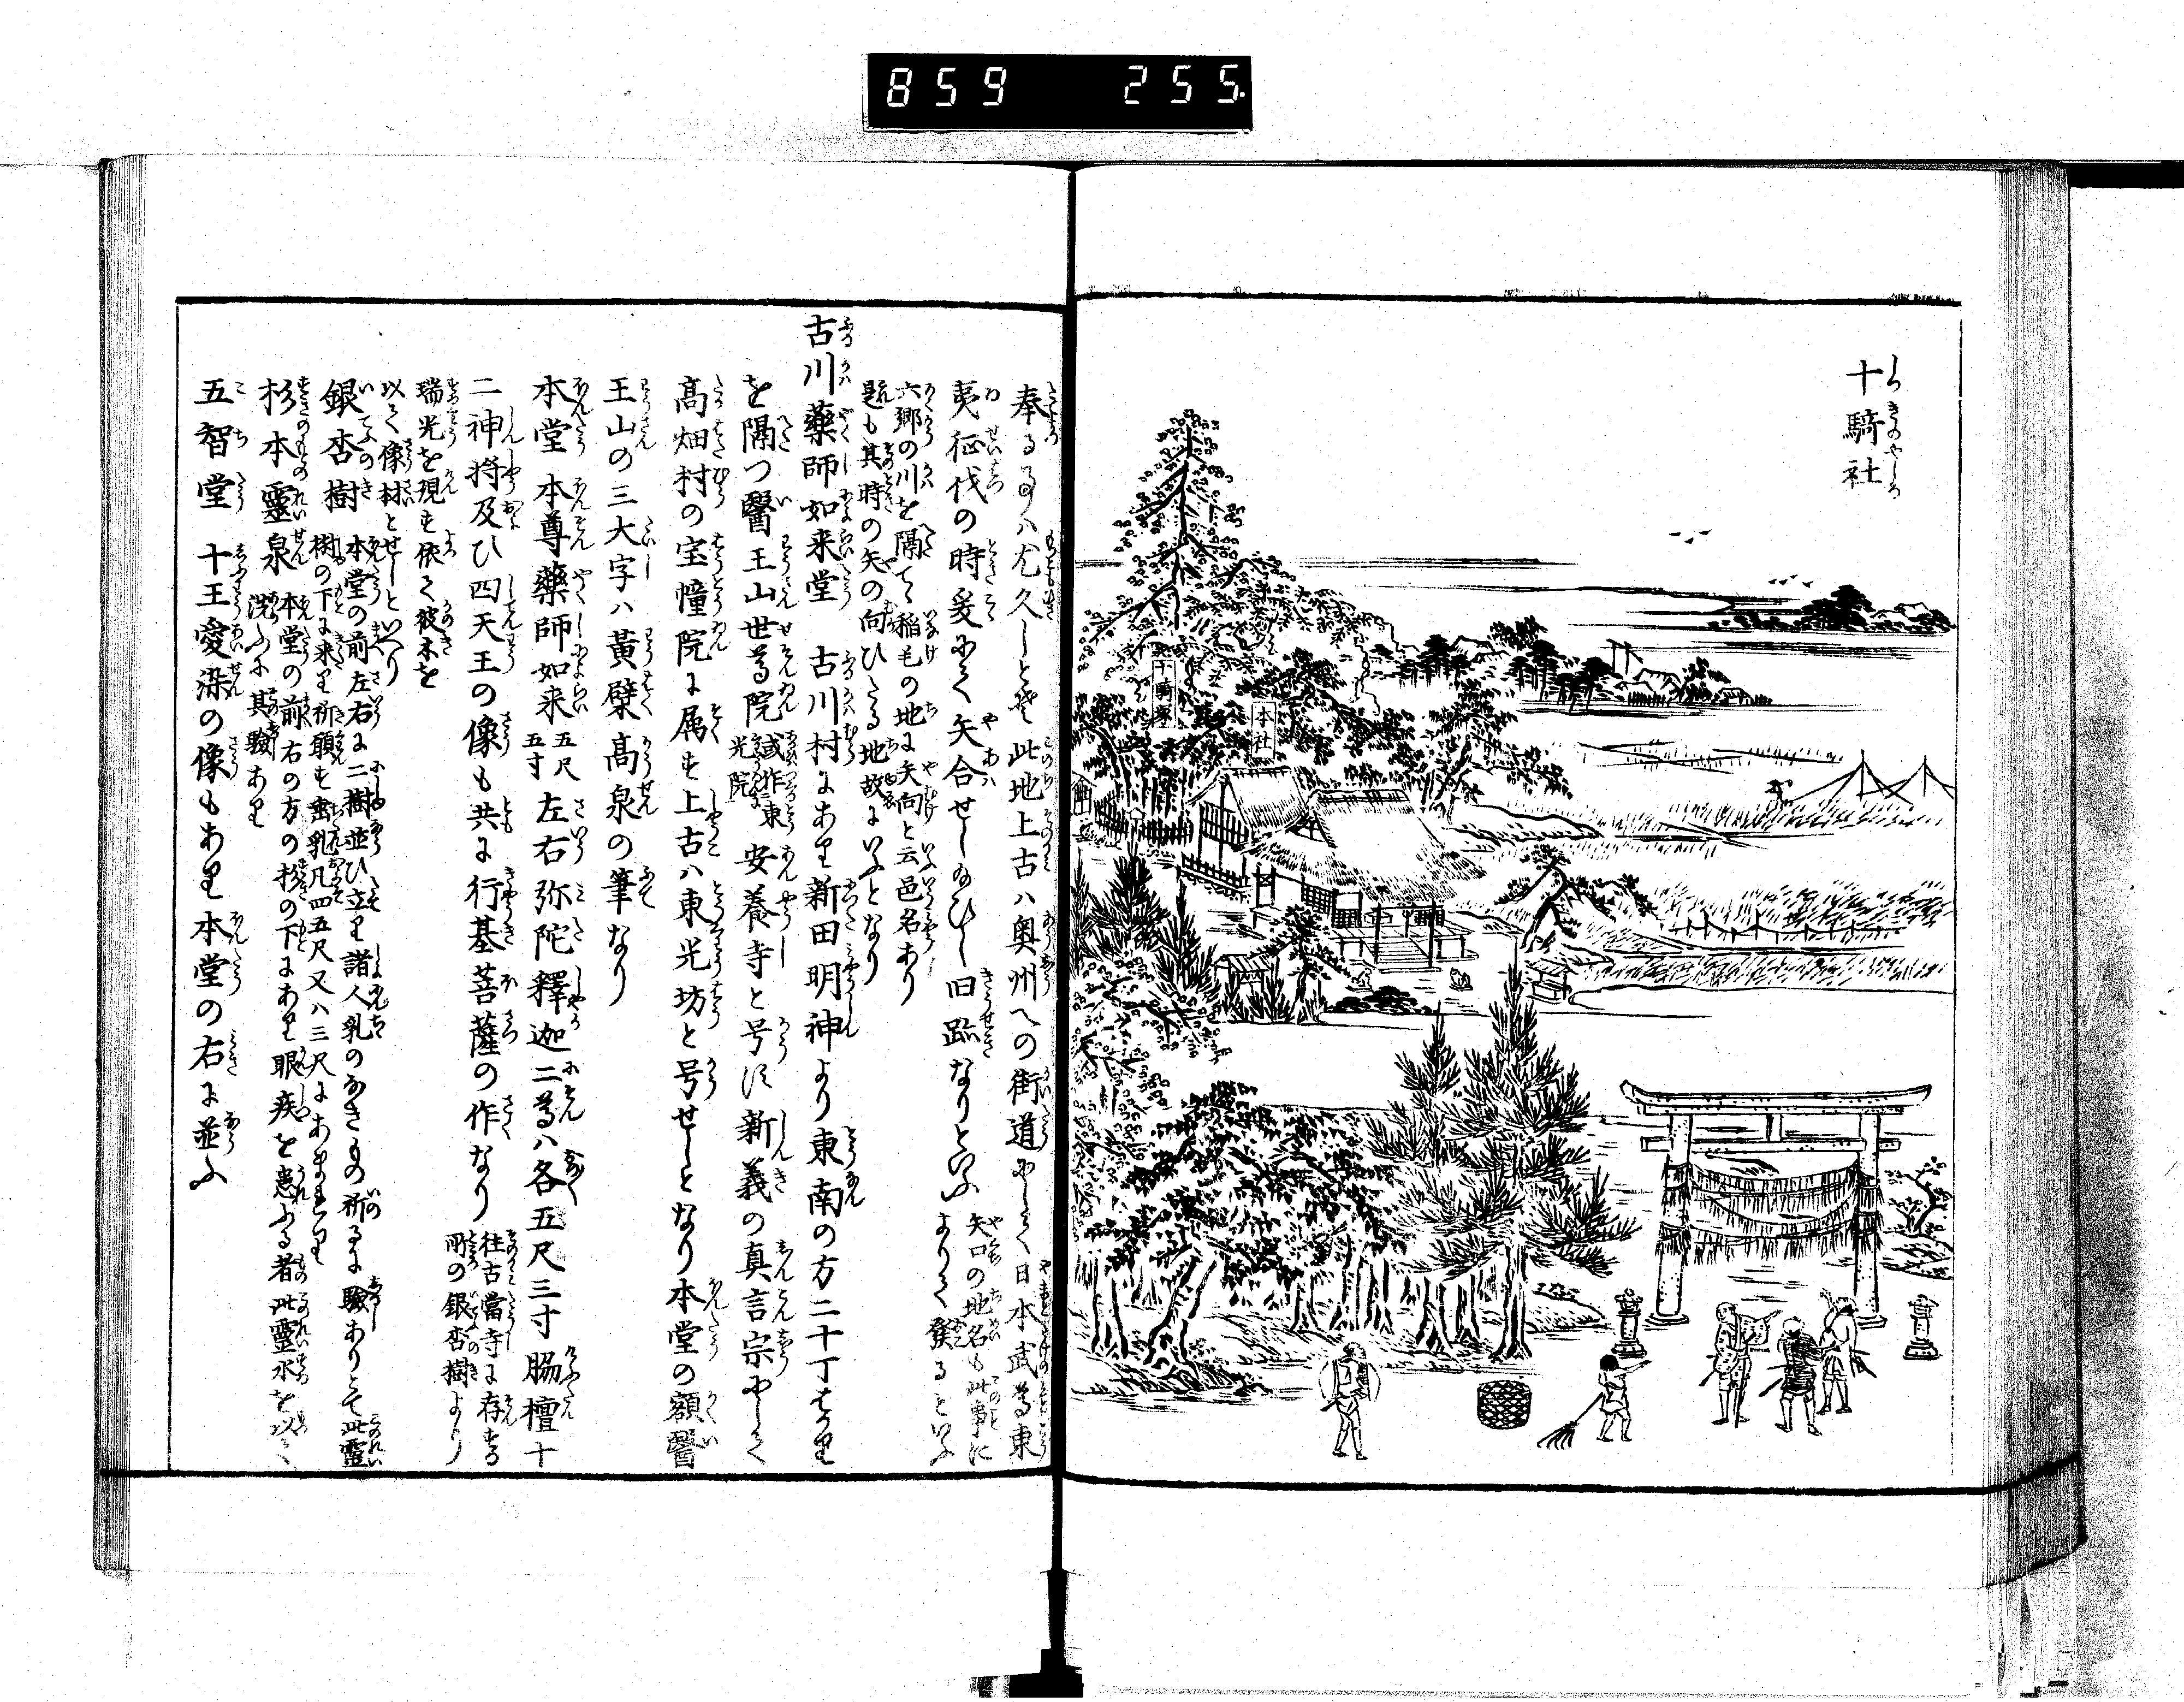 859 255
十騎社
十騎塚
本社
奉る事ハ尤久しとそ此地上古ハ奥州への街道にして日本武尊東
夷征伐の時爰にて矢合せし給ひし旧跡なりといふ
矢口の地名も此事に
よりて発るといふ
六郷の川を隔てゝ稲毛の地に矢向と云邑名あり
是も其時の矢の向ひたる地故にいふとなり
古川薬師如来堂 古川村にあり新田明神より東南の方二十丁はかり
を隔つ醫王山世尊院
或作東
光院
安養寺と号す新義の真言宗にして
高畑村の宝幢院に属す上古ハ東光坊と号せしとなり本堂の額醫
王山の三大字ハ黄檗高泉の筆なり
本堂 本尊薬師如来
五尺
五寸
左右弥陀釋迦二尊ハ各五尺三寸脇檀十
二神将及ひ四天王の像も共に行基菩薩の作なり
往古當寺に存する
所の銀杏樹より
瑞光を現す依て彼木を
以て像材とせしといへり
銀杏樹
本堂の前左右に二樹並ひ立り諸人乳のなきもの祈るに驗ありとて此靈
樹の下に来り祈願す垂乳凡四五尺又ハ三尺にあまれり
杉本靈泉
本堂の前右の方の杉の下にあり眼疾を患ふる者此靈水を以て
洗ふに其驗あり
五智堂 十王愛染の像もあり本堂の右に並ふ